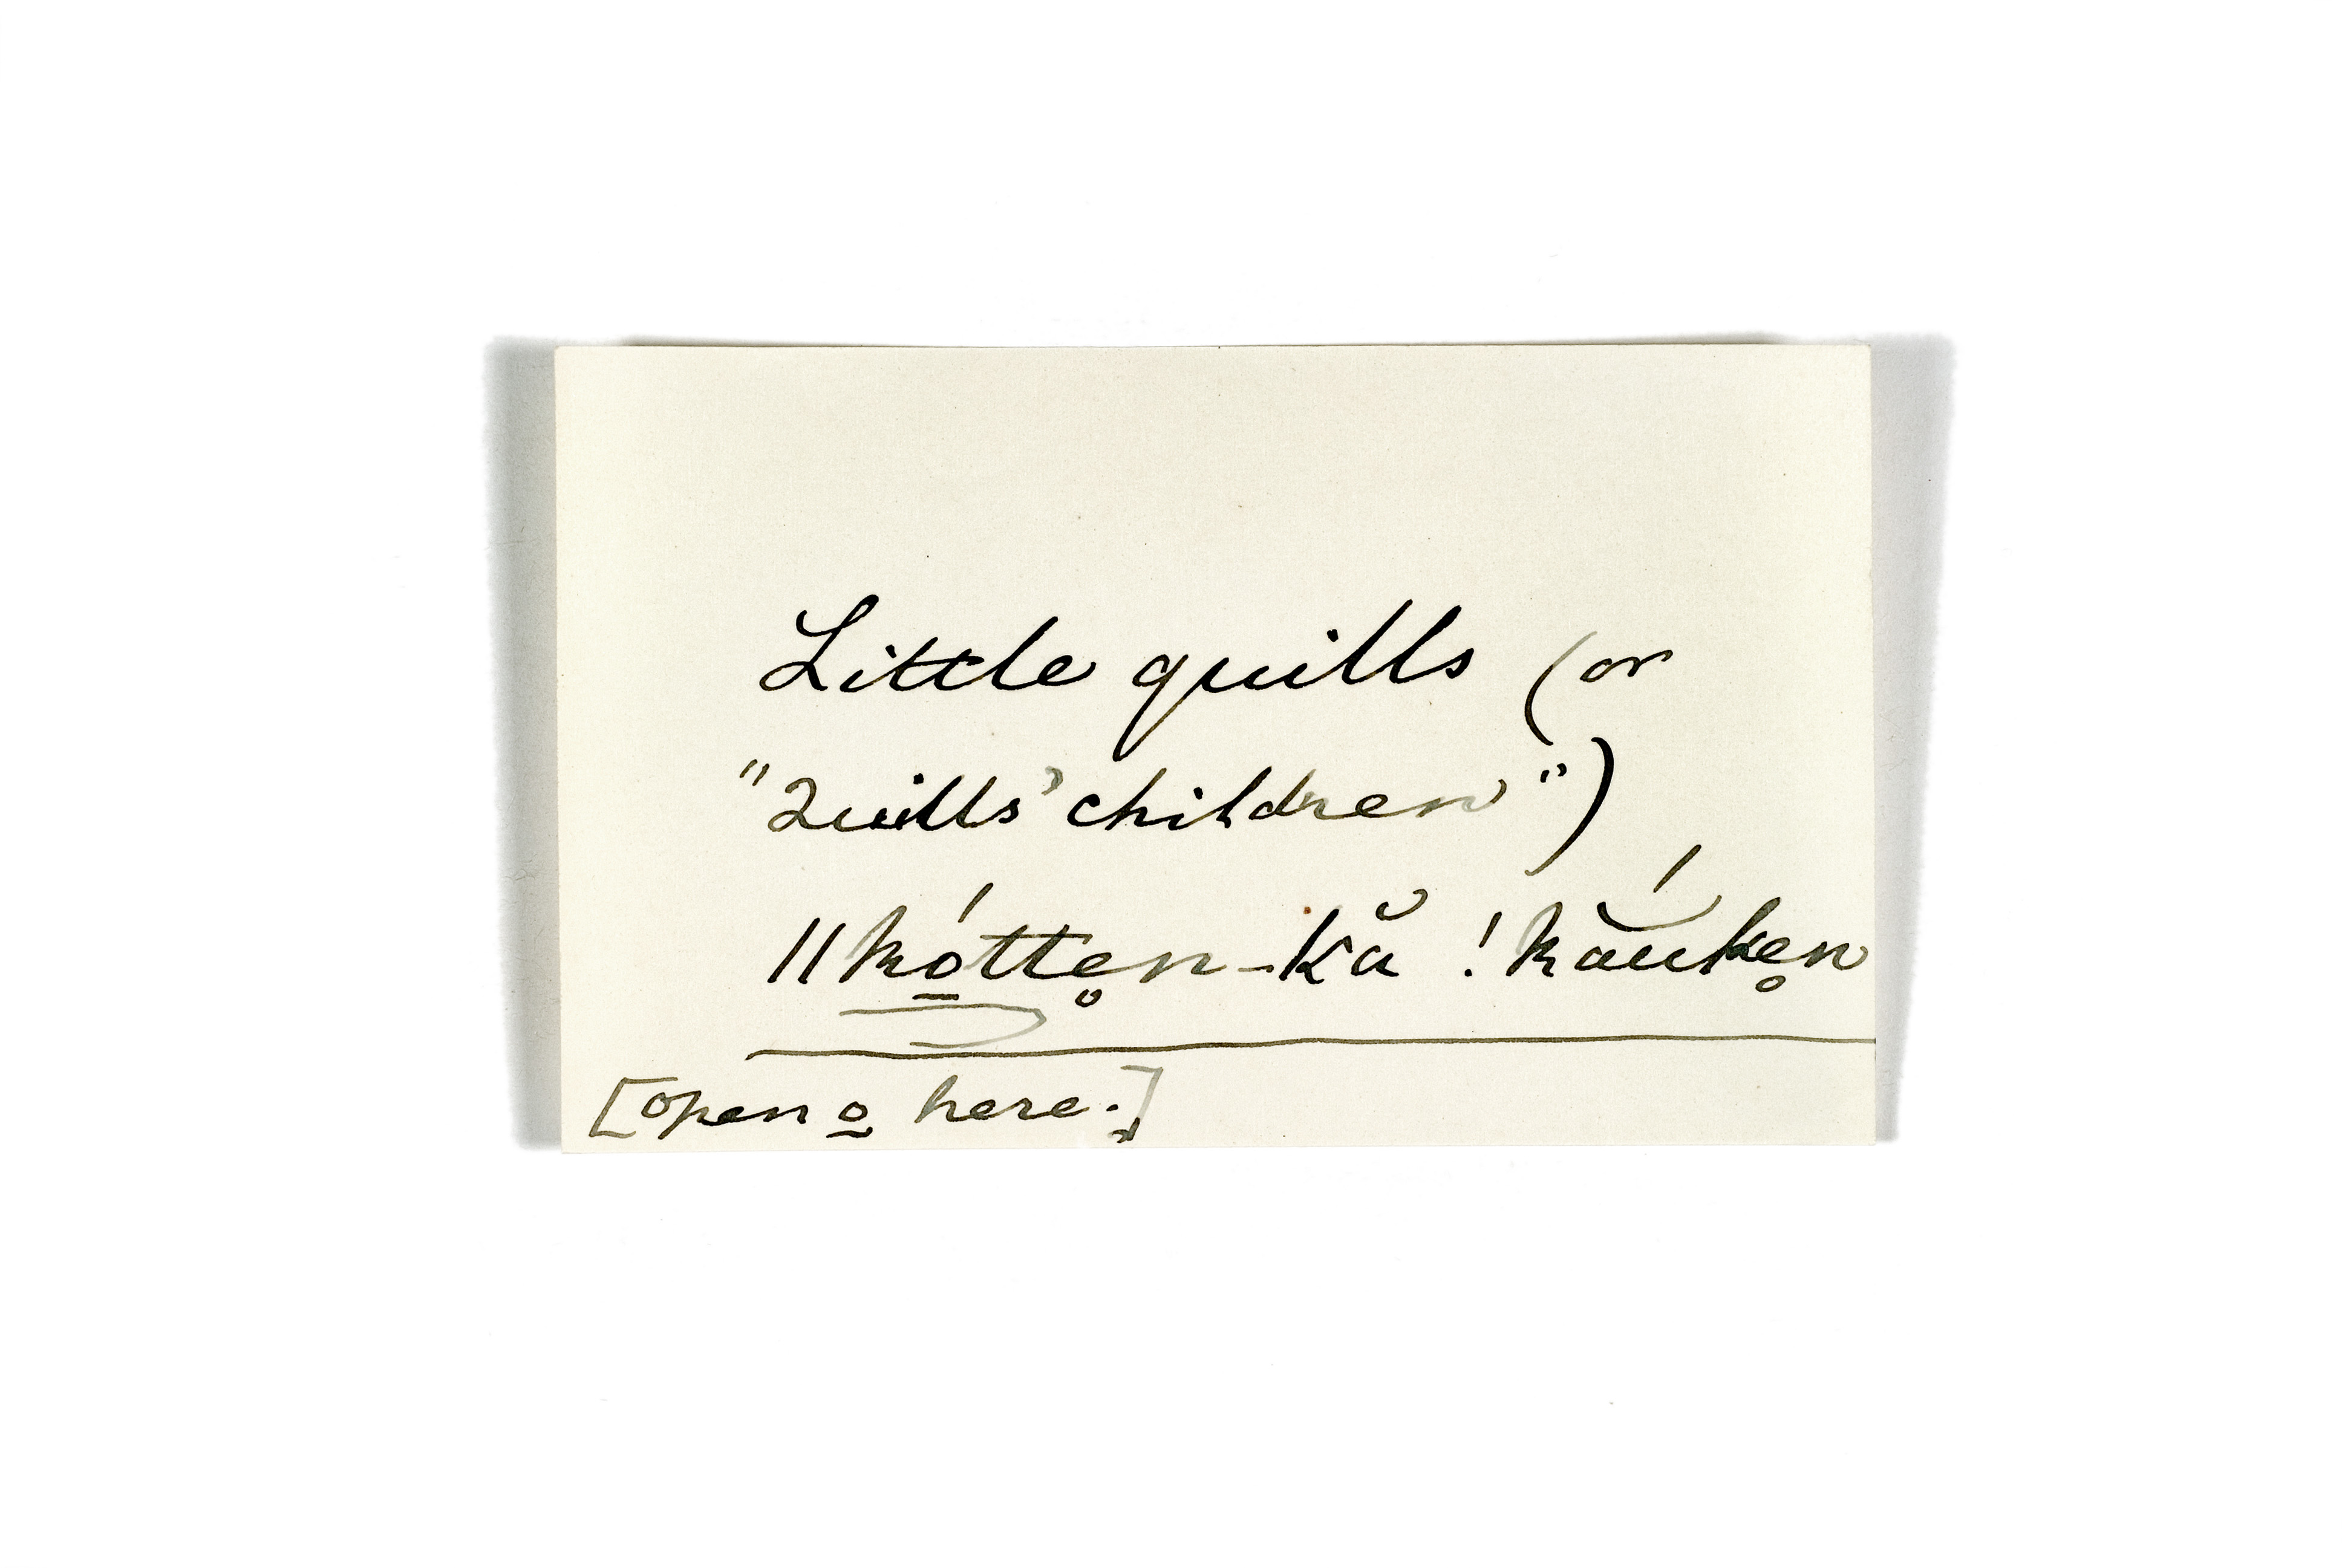 Little quills (or
"Quills' children")
ǁkó̠tte̥n-kă !kắuke̥n
[open o̠ here.]